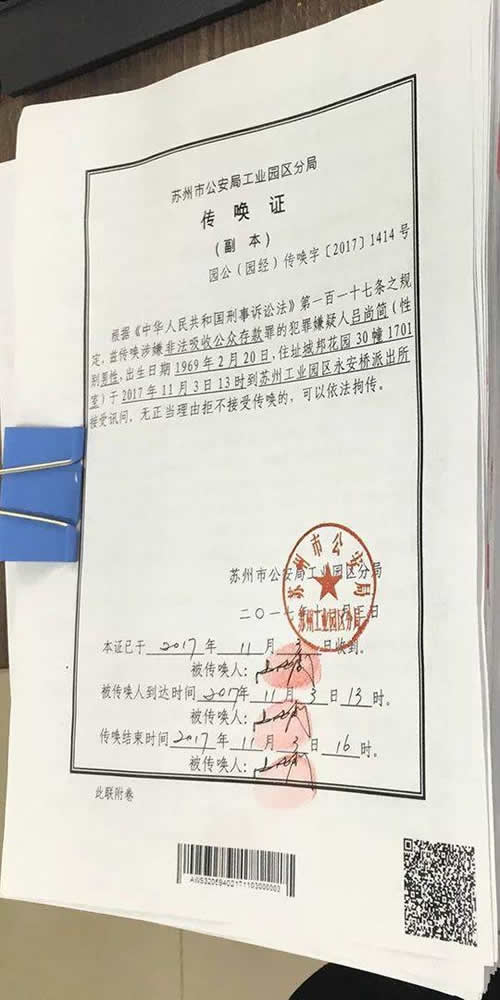 苏州市公安局工业园区分局
传唤证
（副本）
园公（园经）传唤字〔2017〕1414号
根据《中华人民共和国刑事诉讼法》第一百一十七条之规
定，兹传唤涉嫌非法吸收公众存款罪的犯罪嫌疑人吕尚简（性
别男性，出生日期1969年2月20日，住址城邦花园30幢1701
室）于2017年11月3日13时到苏州工业园区永安桥派出所
接受讯问，无正当理由拒不接受传唤的，可以依法拘传。
苏州市公安局工业园区分局
苏州市公安局
苏州工业园区分局
二〇一七年十一月三日
本证已于2017年11月3日收到。
被传唤人：
被传唤人到达时间2017年11月3日13时。
被传唤人：
传唤结束时间2017年11月3日16时。
被传唤人：
此联附卷
AWS3205940217110300003